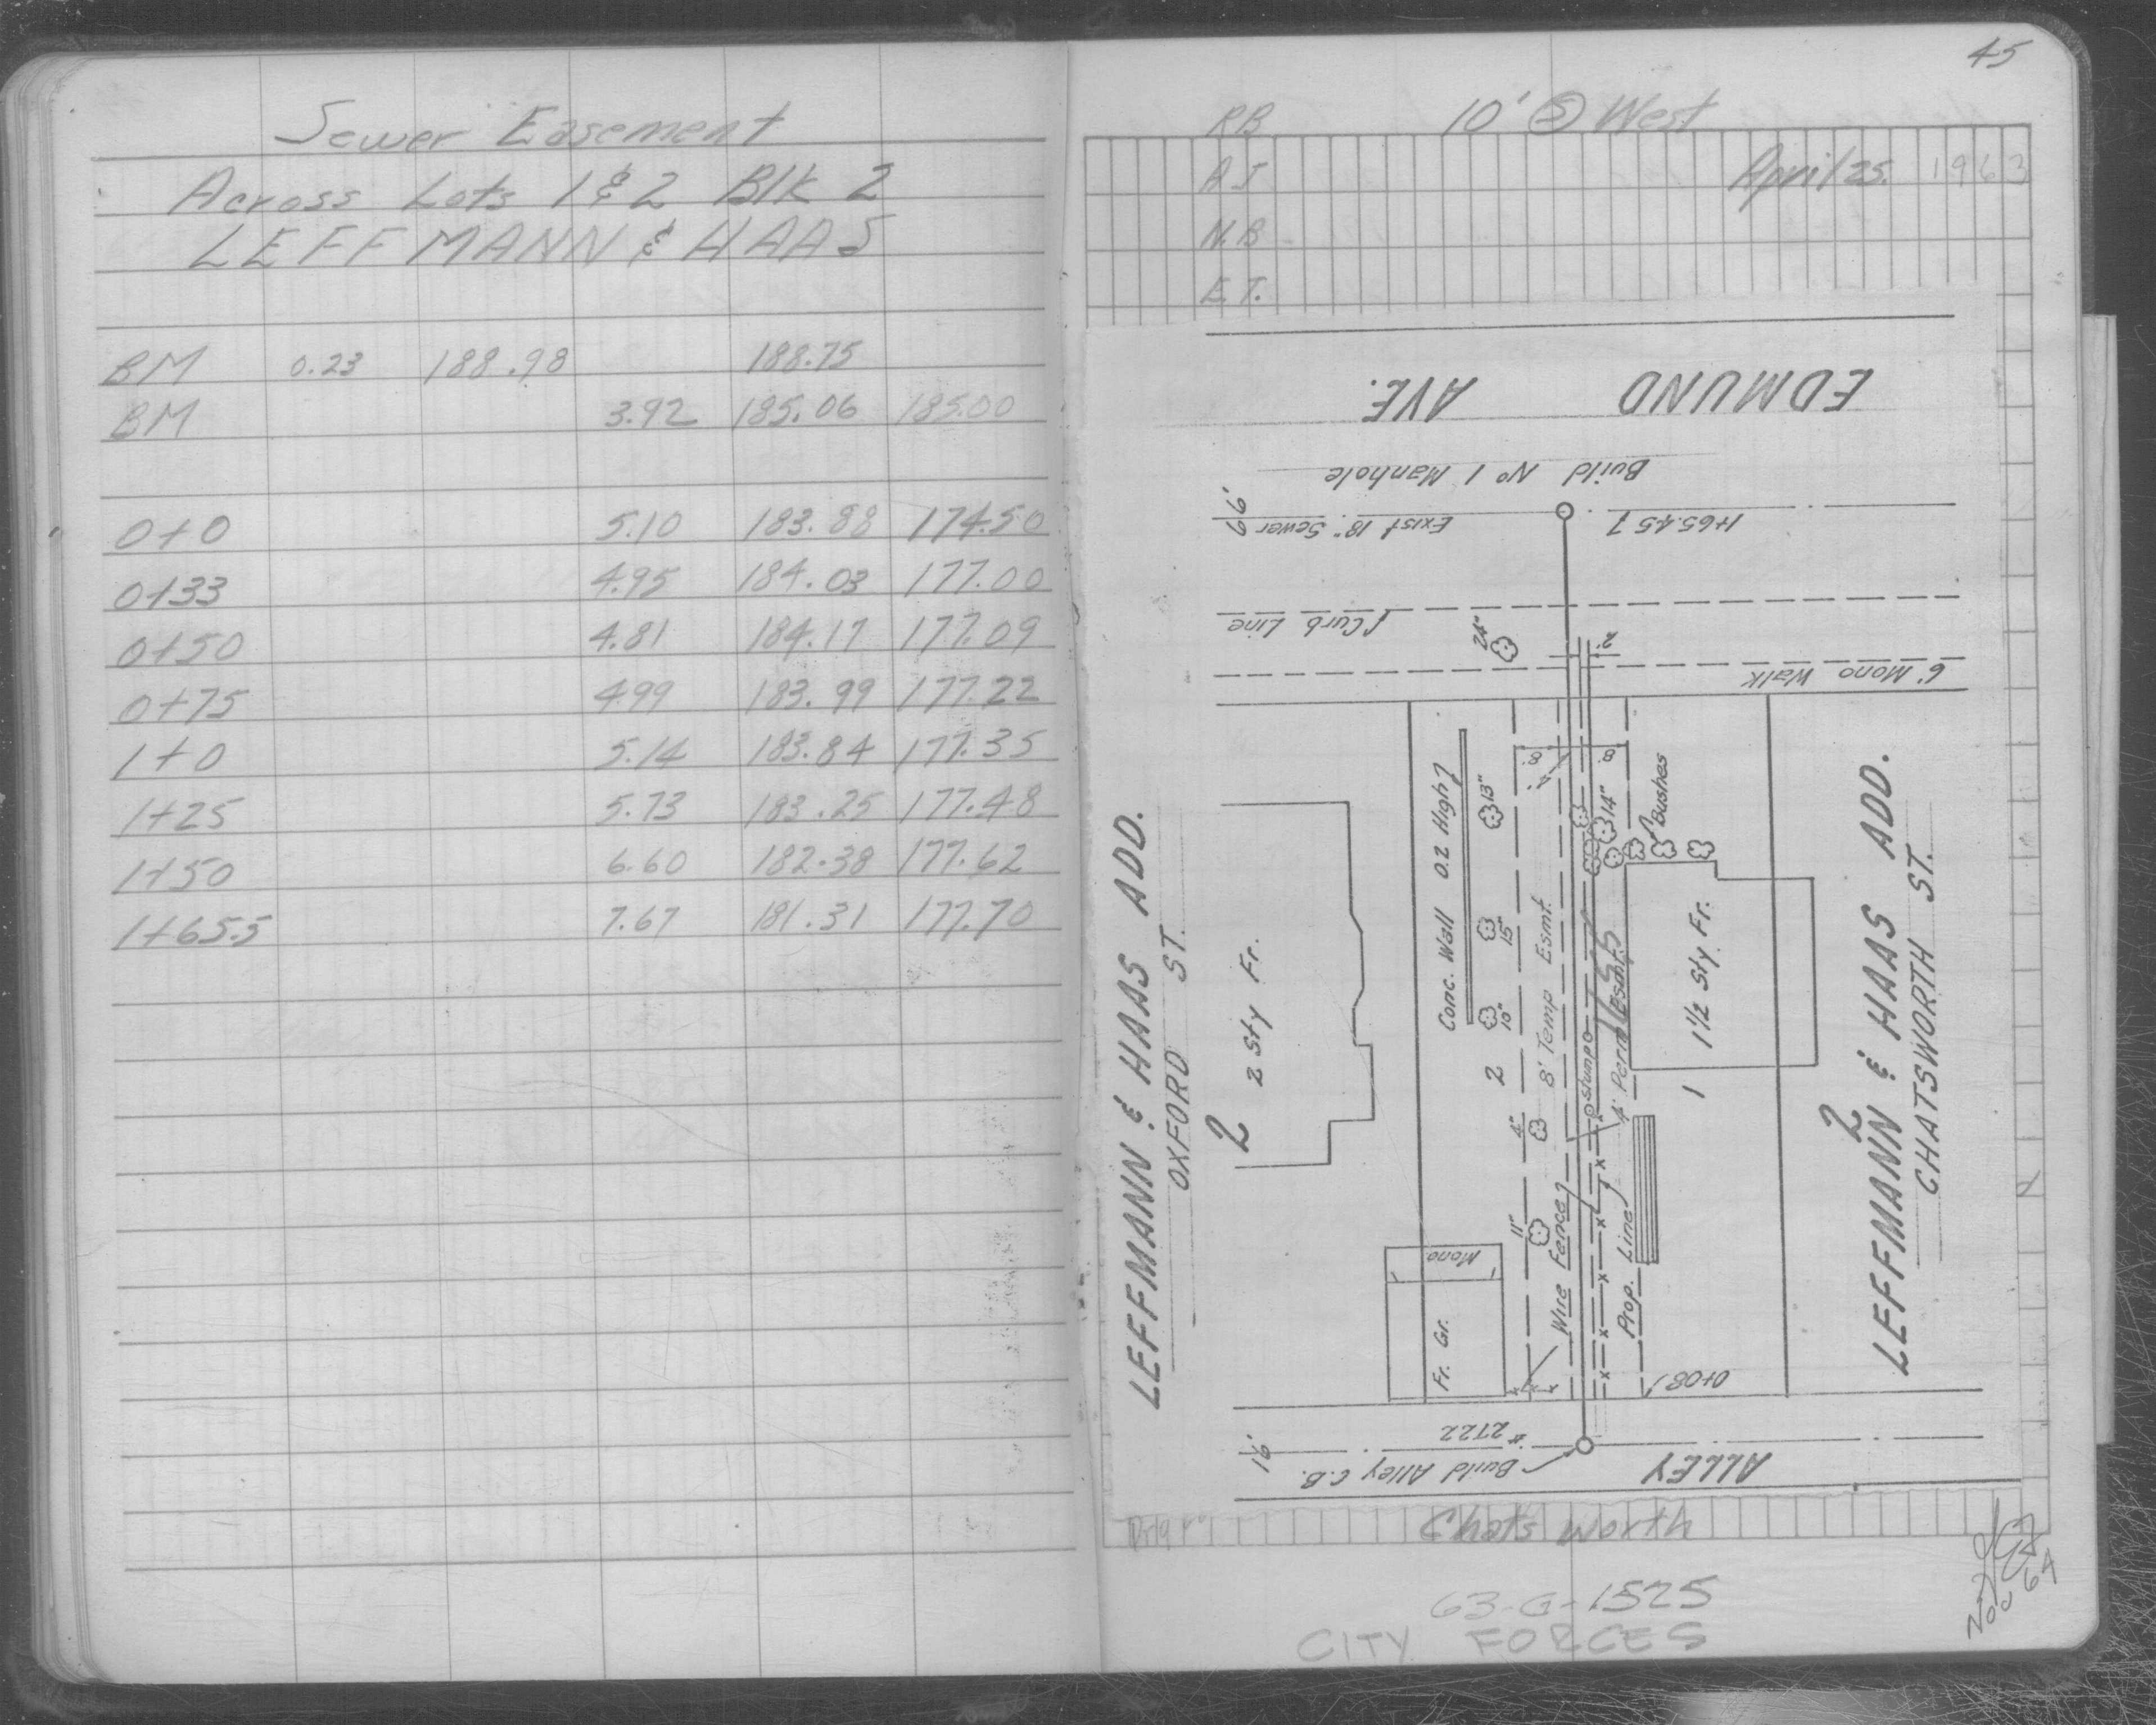 Sewer Easement
Across Lots 1 & 2 Blk 2
LEFFMANN & HAAS
BM 0.23 188.98 188.75
BM 3.92 185.06 185.00
0+0 5.10 183.88 174.50
0+33 4.95 184.03 177.00
0+50 4.81 184.17 177.09
0+75 4.99 183.99 177.22
1+0 5.14 183.84 177.35
1+25 5.73 183.25 177.48
1+50 6.60 182.38 177.62
1+65.5 7.67 181.31 177.70
45
RB 10' S West
A J April 25, 1963
N.B
E.T.
EDMUND AVE.
Build No 1 Manhole
66'
Exist 18" Sewer
1+65.45
Curb Line
24"
2'
6' Mono Walk
8' 8'
Conc. Wall 0.2 High
13"
14"
Bushes
15"
10"
2
8' Temp Esmt.
Stump
4' Perm Esmt.
1 1/2 Sty Fr.
1
2 Sty Fr.
2
4"
11"
Wire Fence
Prop. Line
Mono
Fr. Gr.
0+08
LEFFMANN & HAAS ADD.
OXFORD ST.
2
LEFFMANN & HAAS ADD.
CHATSWORTH ST.
16'
# 2722
Build Alley C.B.
ALLEY
Chatsworth
63-G-1525
CITY FORCES
64